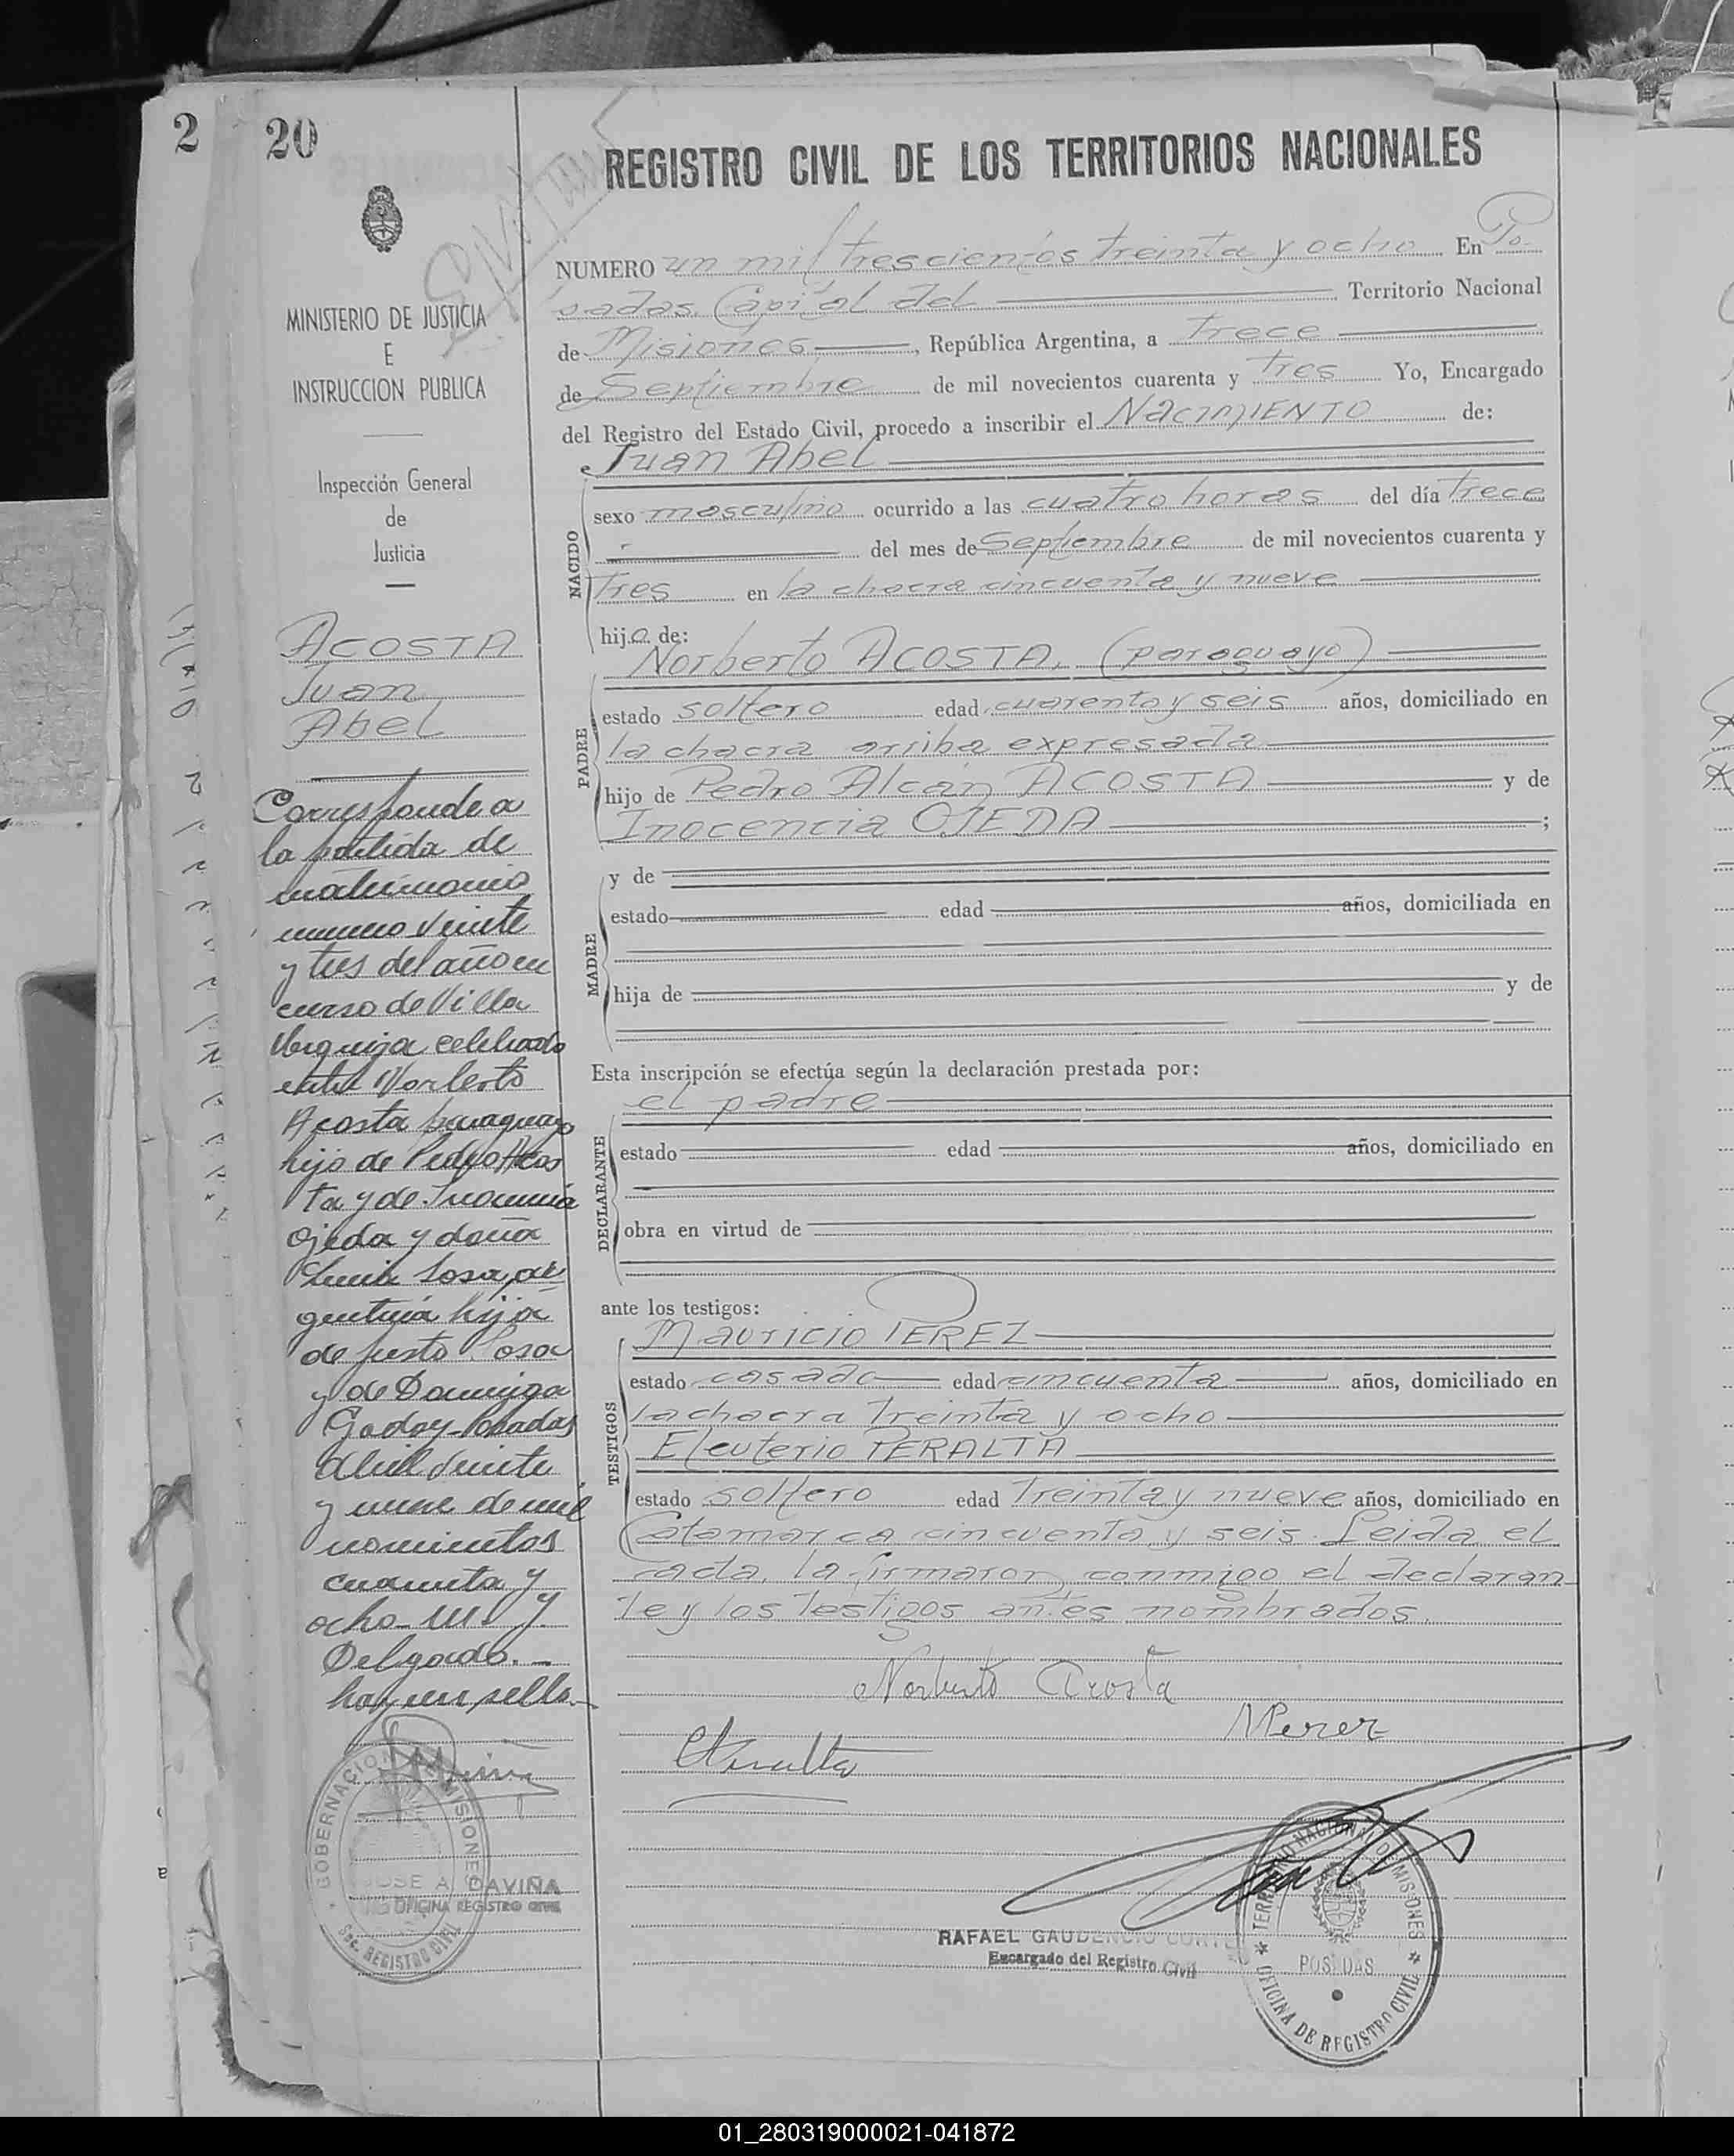 2 20
REGISTRO CIVIL DE LOS TERRITORIOS NACIONALES
MINISTERIO DE JUSTICIA
E
INSTRUCCION PUBLICA
Inspección General
de
Justicia
ACOSTA
Juan
Abel
Corresponde a
la partida de
matrimonio
numero veinte
y tres del año en
curso de Villa
Urquiza celebrado
entre Norberto
Acosta paraguayo
hijo de Pedro Acos
ta y de Inocencia
Ojeda y doña
Sosa, ar
gentina hija
de Justo Sosa
y de Dominga
Godoy - Posadas
Abril veinte
y nueve de mil
novecientos
cuarenta y
ocho
Delgado. -
hay un sello -
GOBERNACION DE MISIONES
JOSE A. GAVIÑA
OFICINA REGISTRO CIVIL
Sec. REGISTRO CIVIL
NUMERO un mil trescientos treinta y ocho En Po-
sadas, Capital del Territorio Nacional
de Misiones, República Argentina, a Trece
de Septiembre de mil novecientos cuarenta y Tres Yo, Encargado
del Registro del Estado Civil, procedo a inscribir el NACIMIENTO de:
Juan Abel
NACIDO
sexo masculino ocurrido a las cuatro horas del día Trece
del mes de Septiembre de mil novecientos cuarenta y
Tres en la chacra cincuenta y nueve
hijo de:
Norberto ACOSTA, (paraguayo)
PADRE
estado soltero edad cuarenta y seis años, domiciliado en
la chacra arriba expresada
hijo de Pedro Alcán ACOSTA y de
Inocencia OJEDA ;
MADRE
y de
estado edad años, domiciliada en
hija de y de
Esta inscripción se efectúa según la declaración prestada por:
el padre
DECLARANTE
estado edad años, domiciliado en
obra en virtud de
ante los testigos:
Mauricio PEREZ
TESTIGOS
estado casado edad cincuenta años, domiciliado en
la chacra Treinta y ocho
Eleuterio PERALTA
estado soltero edad Treinta y nueve años, domiciliado en
Catamarca cincuenta y seis. Leida el
acta, la firmaron conmigo el declaran
te y los Testigos antes nombrados.
Norberto Acosta
MPerez
EPeralta
RAFAEL GAUDENCIO CORTE
Encargado del Registro Civil
TERRITORIO NACIONAL DE MISIONES
POSADAS
OFICINA DE REGISTRO CIVIL
01_280319000021-041872